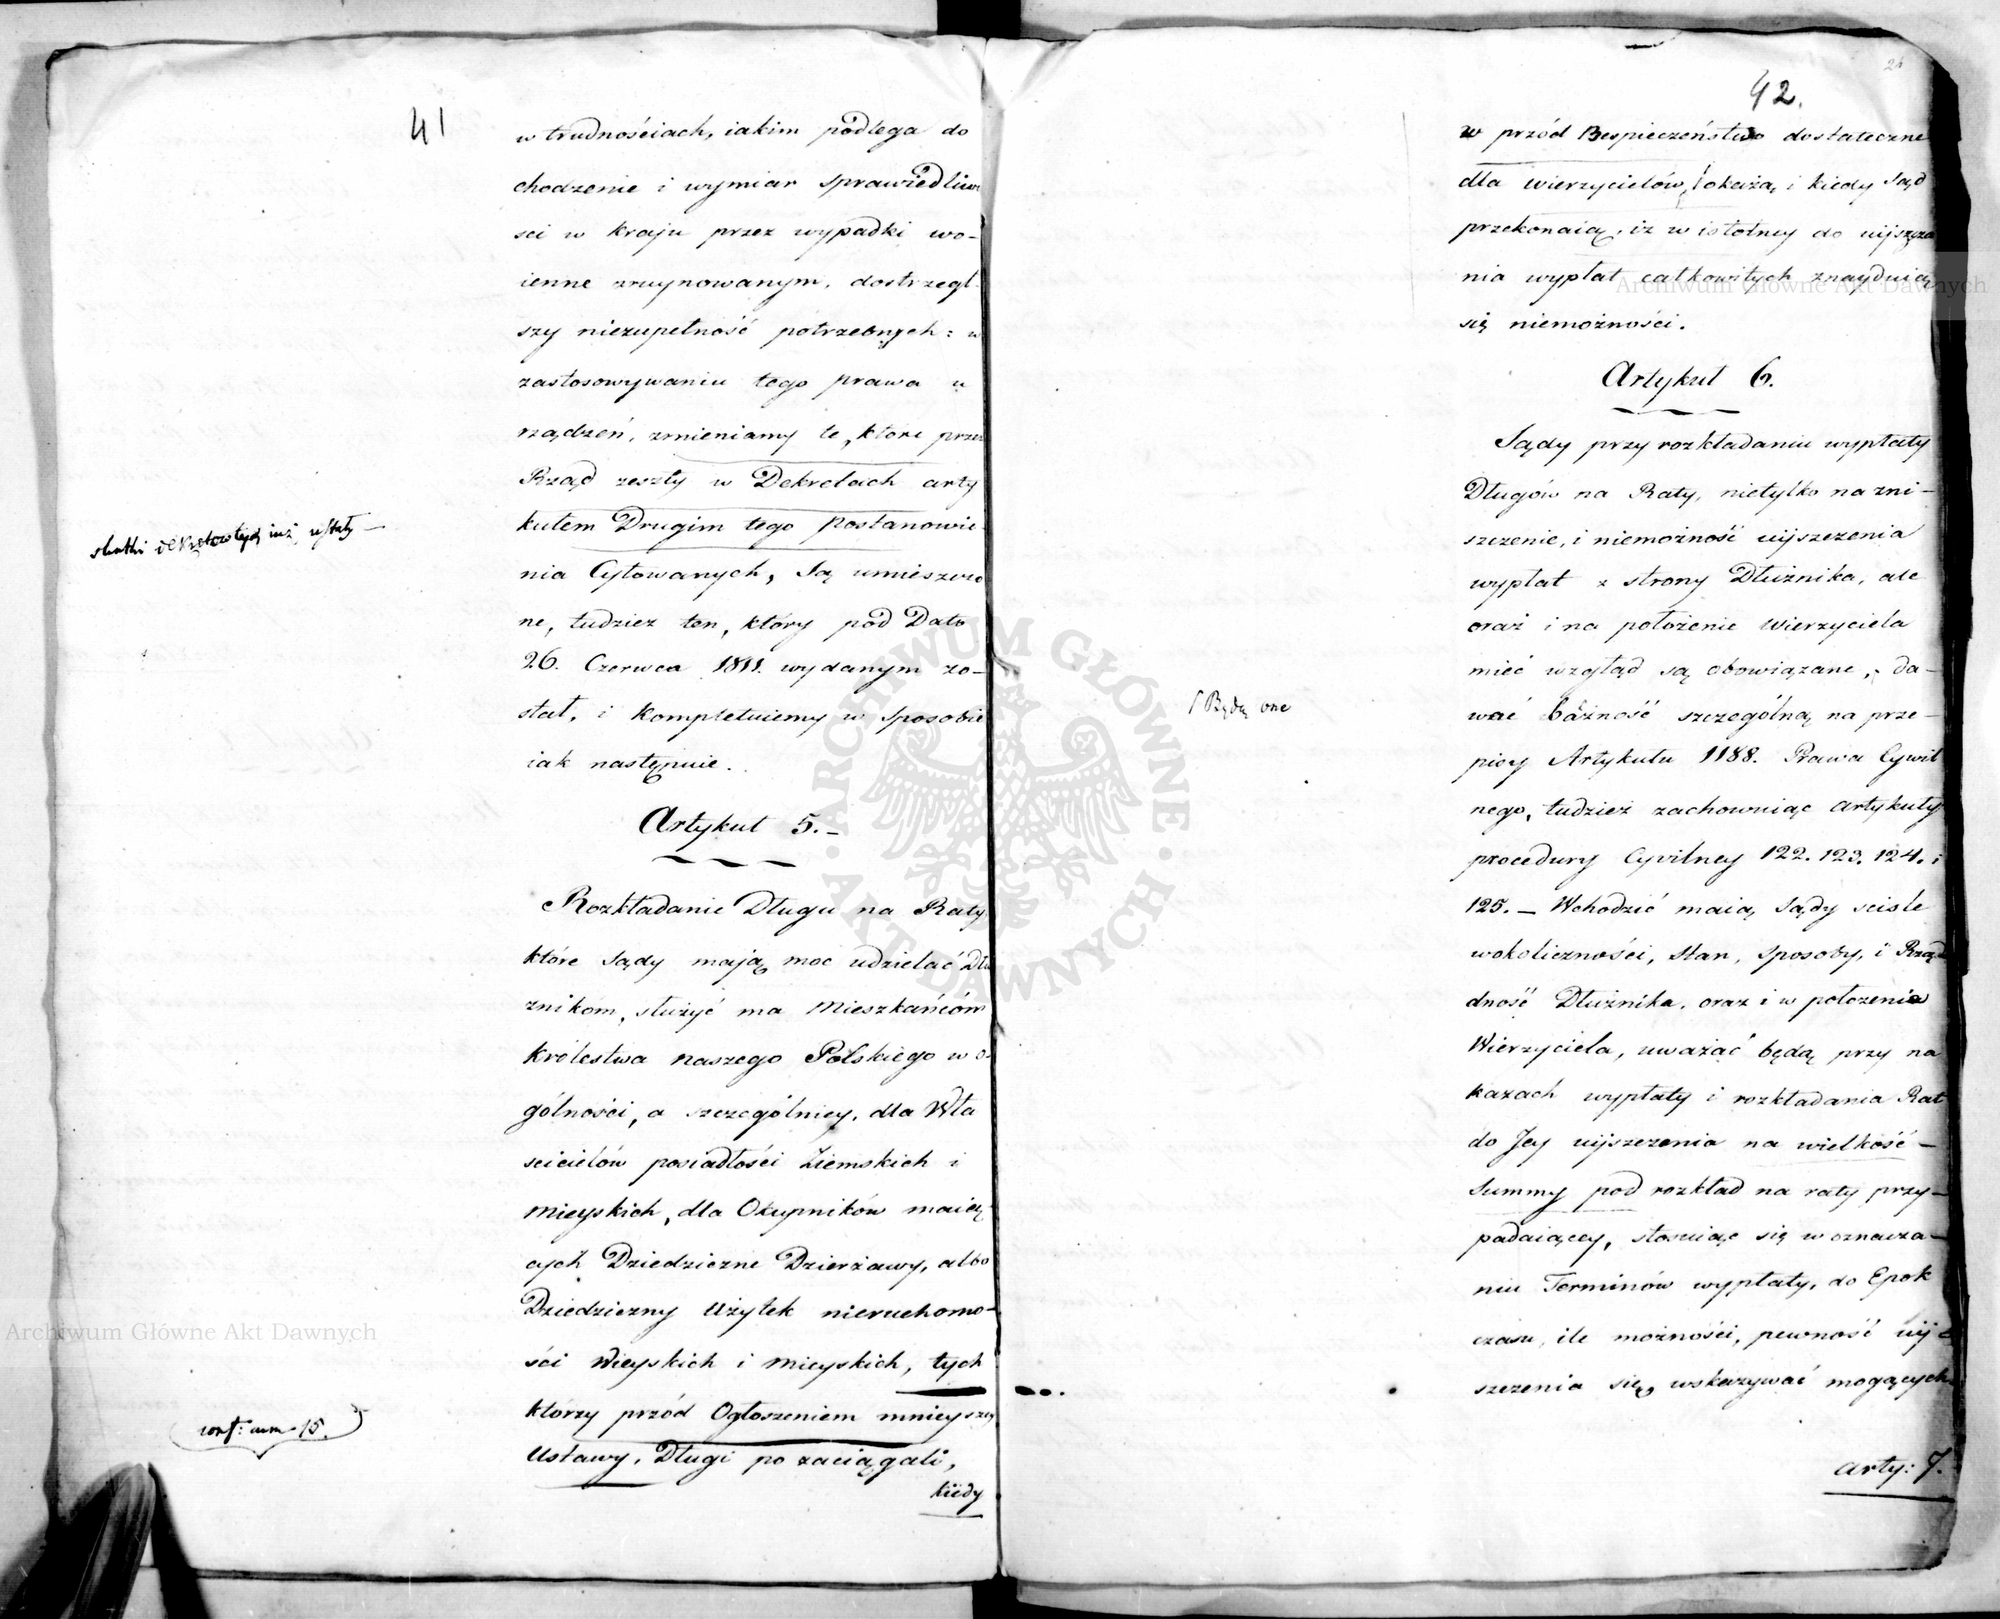 41
w trudnościach, iakim podlega do
chodzenie i wymiar sprawiedliwo
sci w kraju przez wypadki wo-
ienne zruynowanym, dostrzegl-
szy niezupełność potrzebnych: w
zastosowywaniu tego prawa u
rządzeń, zmieniamy te, które przez
Rząd zeszły w Dekretach arty
kułem Drugim tego postanowie-
nia Cytowanych, Są umieszczo
ne, tudzież ten, który pod Dato
26. Czerwca 1811. wydanym zo-
stał, i Kompletuiemy w Sposobie
iak następuie.
skutki
iuż ustały —
Artykuł 5.-
Rozkładanie Długu na Raty
które Sądy mają moc udzielać Dłu
żnikom, służyć ma Mieszkańcóm
Królestwa naszego Polskiego w o-
gólności, a szczególniey, dla Wła
scicielów posiadłości Ziemskich i
Mieyskich, dla Okupników maią-
cych Dziedziczne Dzierżawy, albo
Dziedziczny Użytek nieruchomo-
ści Wieyskich i Mieyskich, tych
którzy przód Ogłoszeniem mnieyszey
Ustawy, Długi po zaciągali,
kiedy
conf: num 15.
42.
w przód Bespieczeństwo dostateczne
dla Wierzycielów, okażą, i kiedy Sąd
przekonaią, iż w istotney do uijszcza
nia wypłat całkowitych znayduią
się niemożności.
Artykuł 6.
Sądy przy rozkładaniu wypłaty
Długów na Raty, nietylko na zni-
szczenie, i niemożność uijszczenia
wypłat z strony Dłużnika, ale
oraz i na położenie Wierzyciela
mieć wzgląd są obowiązane, da-
wać baźność szczególną na prze-
pisy Artykułu 1188. Prawa Cywil
nego, tudzież zachowuiąc Artykuły
procedury Cyvilney 122. 123. 124. i
125. — Wchodzić maią Sądy scisle
wokoliczności, Stan, Sposoby, i Rzą
dność Dłużnika, oraz i w położenie
Wierzyciela, uważać będą przy na
kazach wypłaty i rozkładania Rat
do Jey uijszczenia na wielkość —
Summy pod rozkład na raty przy-
padaiącey, stosuiąc się w oznacza-
niu Terminów wypłaty, do Epok
czasu, ile możności, pewność uij-
szczenia się, wskazywać mogących.
Będą one
Arty: 7.
Archiwum Główne Akt Dawnych
Archiwum Główne Akt Dawnych
ARCHIWUM GŁÓWNE · AKT DAWNYCH ·